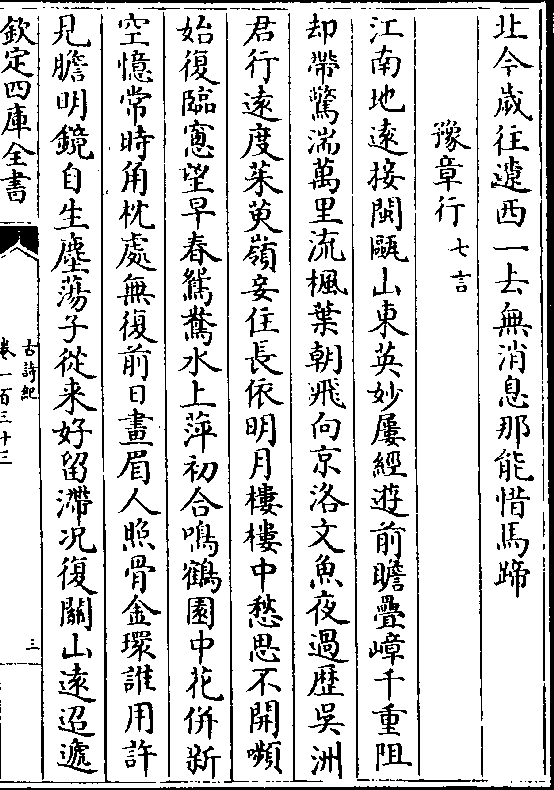 北今歲往遼西一去無消息那能惜馬蹄
豫章行七言
江南地遠接閩甌山東英妙屢經遊前瞻疊嶂千重阻
却帶驚湍萬里流楓葉朝飛向京洛文魚夜過歷吳洲
君行遠度茱萸嶺妾住長依明月樓樓中愁思不開嚬
始復臨窻望早春鴛鴦水上萍初合鳴鶴園中花併新
空憶常時角枕處無復前日畫眉人照骨金環誰用許
見膽明鏡自生塵蕩子從来好留滯况復關山遠迢遞
欽定四庫全書
古詩紀
卷一百三十三
三